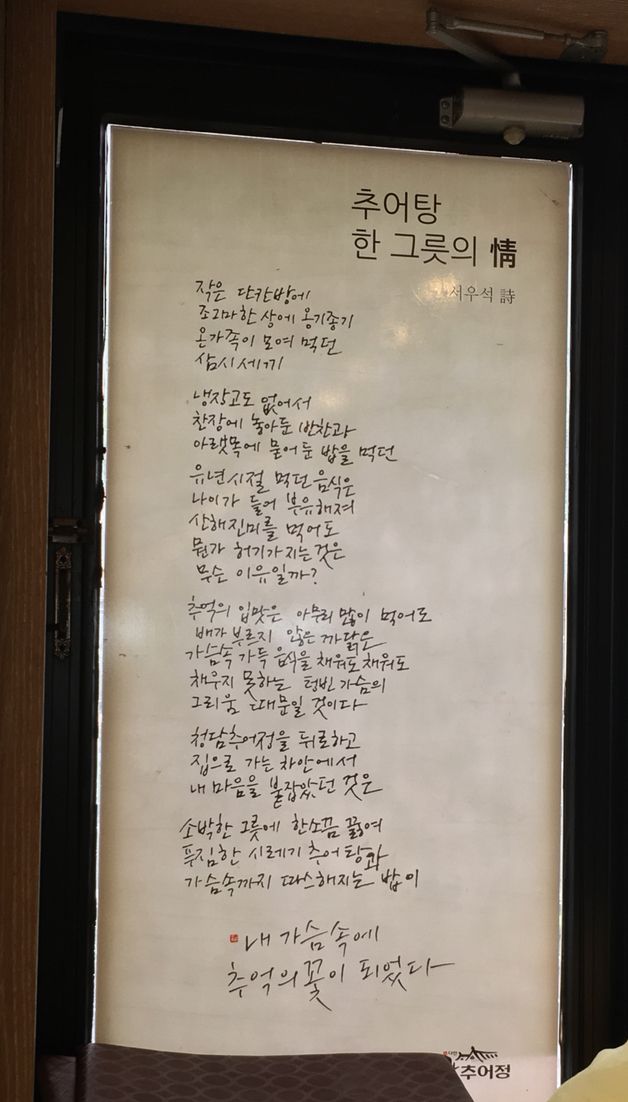 추어탕
한 그릇의 情
서우석 詩
작은 단칸방에
조그마한 상에 옹기종기
온가족이 모여 먹던
삼시세끼
냉장고도 없어서
찬장에 놓아둔 반찬과
아랫목에 묻어둔 밥을 먹던
유년시절 먹던 음식은
나이가 들어 부유해져
산해진미를 먹어도
뭔가 허기가 지는 것은
무슨 이유일까?
추억의 입맛은 아무리 많이 먹어도
배가 부르지 않은 까닭은
가슴속 가득 음식을 채워도 채워도
채우지 못하는 텅빈 가슴의
그리움 때문일 것이다
청담추어정을 뒤로하고
집으로 가는 차안에서
내 마음을 붙잡았던 것은
소박한 그릇에 한소끔 끓여
푸짐한 시레기 추어탕과
가슴속까지 따스해지는 밥이
내 가슴속에
추억의 꽃이 되었다
추어정